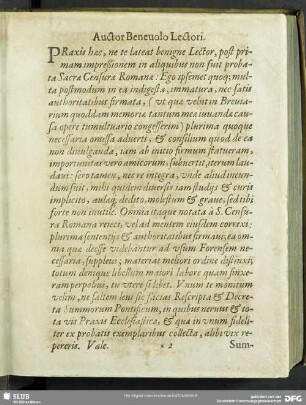 Auctor Beneuolo Lectori.
PRaxis hæc, ne te lateat benigne Lector, post pri-
mam impressionem in aliquibus non fuit proba-
ta Sacra Censura Romana: Ego ipsemet quoq; mul-
ta postmodum in ea indigesta, immatura, nec satis
authoritatibus firmata, (ut quæ velut in Breuia-
rium quoddam memoriæ tantum meæ iuuandæ cau-
sa opere tumultuario congesserim) plurima quoque
necessaria omissa aduerti, & consilium quod de ea
non diuulganda, iam ab initio firmum statueram,
importunitas vero amicorum subuertit, iterum lau-
daui: sero tamen, nec re integra, vnde aliud incun-
dum fuit, mihi quidem diuersis iam studijs & curis
implicito, aulæq; dedito, molestum & graue, sed tibi
forte non inutile. Omnia itaque notata à S. Censu-
ra Romana reieci, vel ad mentem eiusdem correxi:
plurima sententijs & authoritatibus firmaui; ea om-
nia quæ deesse videbantur ad vsum Forensem ne-
cessaria, suppleui; materias meliori ordine distinxi,
totum denique libellum maiori labore quam sinxe-
ram perpoliui, tu vtere si libet. Vnum te monitum
velim, ne saltem leui sic facias Rescripta & Decre-
ta Summorum Pontificum, in quibus neruus & to-
ta vis Praxis Ecclesiasticæ, & quæ in vnum fideli-
ter ex probatis exemplaribus collecta, alibi vix re-
pereris. Vale.
* 2 Sum-
SLUB